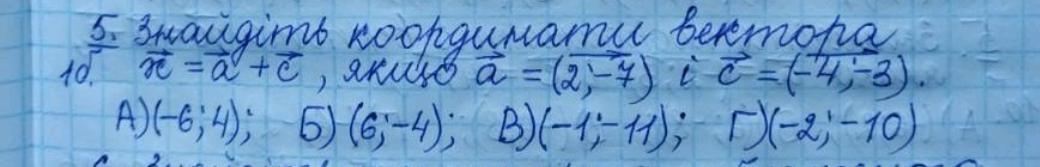 5. Знайдіть координати вектора
1б. x⃗ = a⃗ + c⃗, якщо a⃗ = (2;-7) і c⃗ = (-4;-3).
А)(-6;4); Б)(6;-4); В)(-1;-11); Г)(-2;-10)